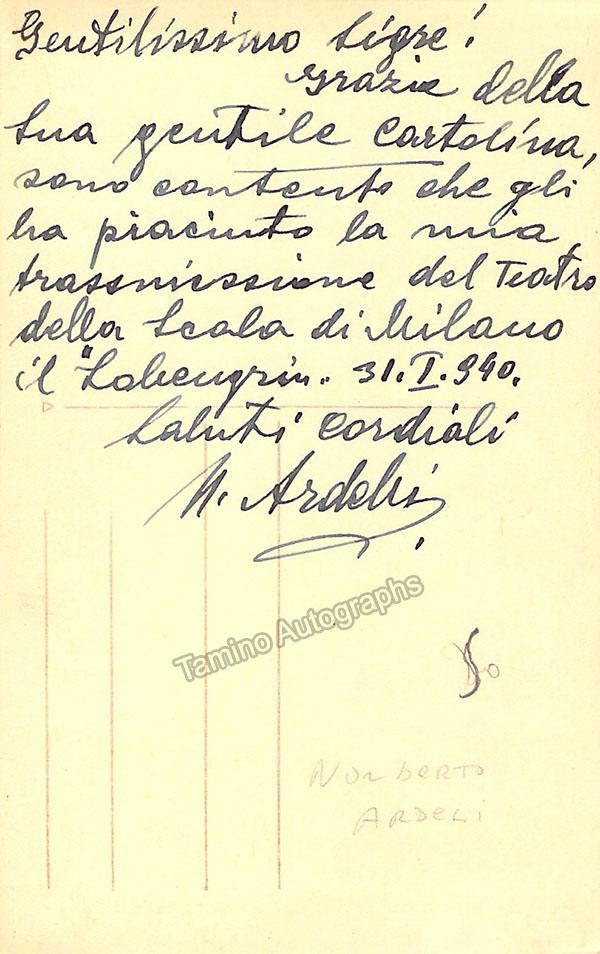 Gentilissimo Sigre!
Grazie della
Sua gentile Cartolina,
sono contento che gli
ha piaciuto la mia
trassmissione del Teatro
della Scala di Milano
il "Lohengrin. 31.I.940.
Saluti Cordiali
N. Ardelli
Tamino Autographs
NORBERTO
ARDELI